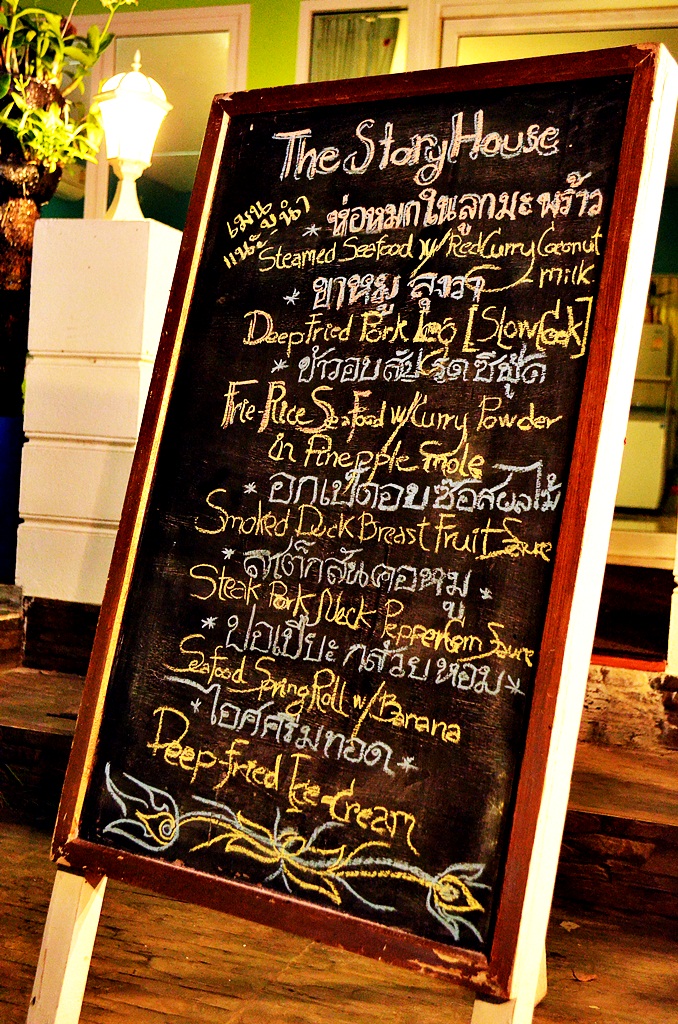 The Story House
เมนู
แนะนำ
* ห่อหมกในลูกมะพร้าว
Steamed Seafood w/ Red Curry Coconut
milk
* ขาหมู
Deep Fried Pork Leg [Slow Cook]
* ข้าวอบสัปรด ซีฟู้ด
Frie-Rice Seafood w/ Curry Powder
in Pinepple
* อกเป็ดอบซ๊อสผลไม้
Smoked Duck Breast Fruit Sauce
* สเต็กสันคอหมู *
Steak Pork Neck Pepperkorn Sauce
* ปอเปี๊ยะกล้วยหอม *
Seafood Spring Roll w/ Banana
* ไอศครีมทอด *
Deep-fried Ice-Cream